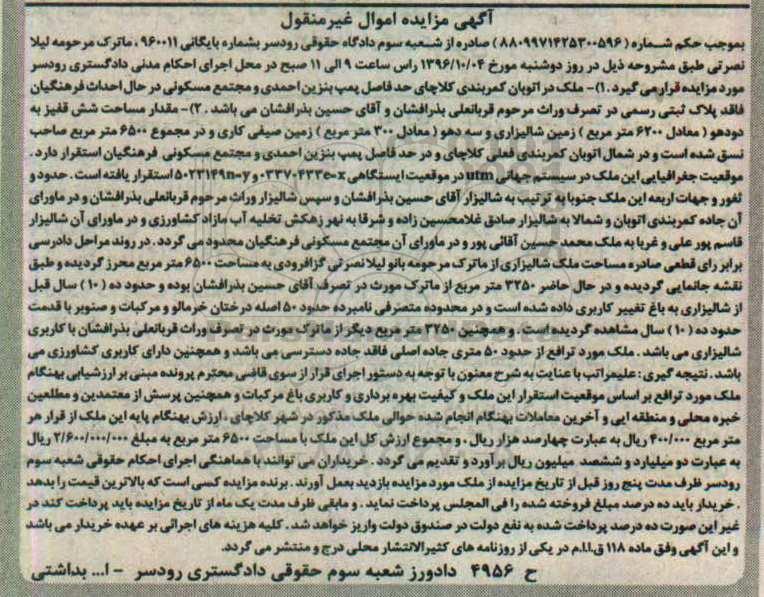 آگهی مزایده اموال غیرمنقول
بموجب حکم شماره ( ۸۸۰۹۹۷۱۴۲۵۳۰۰۵۹۶ ) صادره از شعبه سوم دادگاه حقوقی رودسر بشماره بایگانی ۹۶۰۰۱۱ ، ماترک مرحومه لیلا
نصرتی طبق مشروحه ذیل در روز دوشنبه مورخ ۱۳۹۶/۱۰/۰۴ راس ساعت ۹ الی ۱۱ صبح در محل اجرای احکام مدنی دادگستری رودسر
مورد مزایده قرار می گیرد . ۱)- ملک در اتوبان کمربندی کلاچای حد فاصل پمپ بنزین احمدی و مجتمع مسکونی در حال احداث فرهنگیان
فاقد پلاک ثبتی رسمی در تصرف وراث مرحوم قربانعلی بذرافشان و آقای حسین بذرافشان می باشد . ۲)- مقدار مساحت شش قفیز به
دودهو ( معادل ۶۲۰۰ متر مربع ) زمین شالیزاری و سه دهو ( معادل ۳۰۰ متر مربع ) زمین صیفی کاری و در مجموع ۶۵۰۰ متر مربع صاحب
نسق شده است و در شمال اتوبان کمربندی فعلی کلاچای و در حد فاصل پمپ بنزین احمدی و مجتمع مسکونی فرهنگیان استقرار دارد .
موقعیت جغرافیایی این ملک در سیستم جهانی utm در موقعیت ایستگاهی ۰۳۳۷۰۴۳۳e=x و ۵۰۲۳۱۴۹n=y استقرار یافته است . حدود و
ثغور و جهات اربعه این ملک جنوبا به ترتیب به شالیزار آقای حسین بذرافشان و سپس شالیزار وراث مرحوم قربانعلی بذرافشان و در ماورای
آن جاده کمربندی اتوبان و شمالا به شالیزار صادق غلامحسین زاده و شرقا به نهر زهکش تخلیه آب مازاد کشاورزی و در ماورای آن شالیزار
قاسم پور علی و غربا به ملک محمد حسین آقائی پور و در ماورای آن مجتمع مسکونی فرهنگیان محدود می گردد . در روند مراحل دادرسی
برابر رای قطعی صادره مساحت ملک شالیزاری از ماترک مرحومه بانو لیلا نصرتی گزافرودی به مساحت ۶۵۰۰ متر مربع محرز گردیده و طبق
نقشه جانمایی گردیده و در حال حاضر ۳۲۵۰ متر مربع از ماترک مورث در تصرف آقای حسین بذرافشان بوده و حدود ده ( ۱۰ ) سال قبل
از شالیزاری به باغ تغییر کاربری داده شده است و در محدوده متصرفی نامبرده حدود ۵۰ اصله درختان خرمالو و مرکبات و صنوبر با قدمت
حدود ده ( ۱۰ ) سال مشاهده گردیده است . و همچنین ۳۲۵۰ متر مربع دیگر از ماترک مورث در تصرف وراث قربانعلی بذرافشان با کاربری
شالیزاری می باشد . ملک مورد ترافع از حدود ۵۰ متری جاده اصلی فاقد جاده دسترسی می باشد و همچنین دارای کاربری کشاورزی می
باشد . نتیجه گیری : علیمراتب با عنایت به شرح معنون با توجه به دستور اجرای قرار از سوی قاضی محترم پرونده مبنی بر ارزشیابی بهنگام
ملک مورد ترافع بر اساس موقعیت استقرار این ملک و کیفیت بهره برداری و کاربری باغ مرکبات و همچنین پرسش از معتمدین و مطلعین
خبره محلی و منطقه ایی و آخرین معاملات بهنگام انجام شده حوالی ملک مذکور در شهر کلاچای ، ارزش بهنگام پایه این ملک از قرار هر
متر مربع ۴۰۰/۰۰۰ ریال به عبارت چهارصد هزار ریال . و مجموع ارزش کل این ملک با مساحت ۶۵۰۰ متر مربع به مبلغ ۲/۶۰۰/۰۰۰/۰۰۰ ریال
به عبارت دو میلیارد و ششصد میلیون ریال برآورد و تقدیم می گردد . خریداران می توانند با هماهنگی اجرای احکام حقوقی شعبه سوم
رودسر ظرف مدت پنج روز قبل از تاریخ مزایده از ملک مورد مزایده بازدید بعمل آورند . برنده مزایده کسی است که بالاترین قیمت را بدهد
. خریدار باید ده درصد مبلغ فروخته شده را فی المجلس پرداخت نماید . و مابقی ظرف مدت یک ماه از تاریخ مزایده باید پرداخت کند در
غیر این صورت ده درصد پرداخت شده به نفع دولت در صندوق دولت واریز خواهد شد . کلیه هزینه های اجرائی بر عهده خریدار می باشد
و این آگهی وفق ماده ۱۱۸ ق.ا.ا.م در یکی از روزنامه های کثیرالانتشار محلی درج و منتشر می گردد.
ح ۴۹۵۶ دادورز شعبه سوم حقوقی دادگستری رودسر - ا... بداشتی